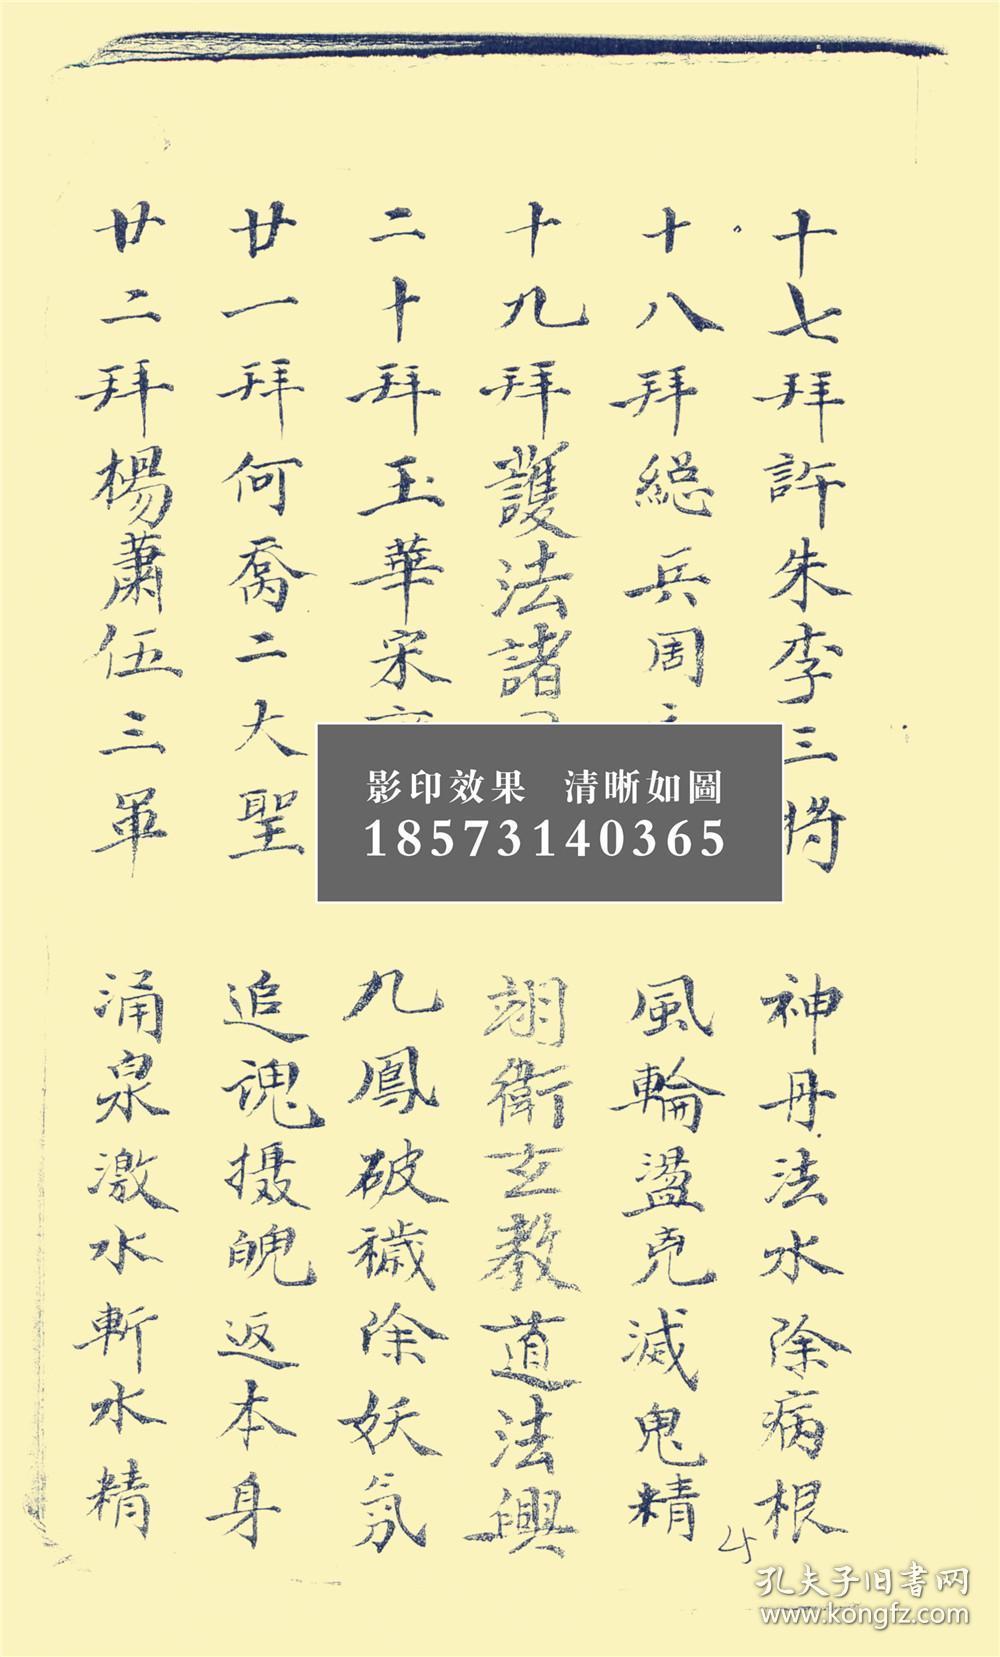 十七拜許朱李三將 神丹法水除病根
十八拜總兵周 風輪盪兇滅鬼精
十九拜護法諸 翊衛玄教道法興
二十拜玉華宋 九鳳破穢除妖氛
廿一拜何喬二大聖 追魂摄魄返本身
廿二拜楊蕭伍三軍 涌泉激水斬水精
影印效果 清晰如圖
18573140365
孔夫子旧書网
www.kongfz.com